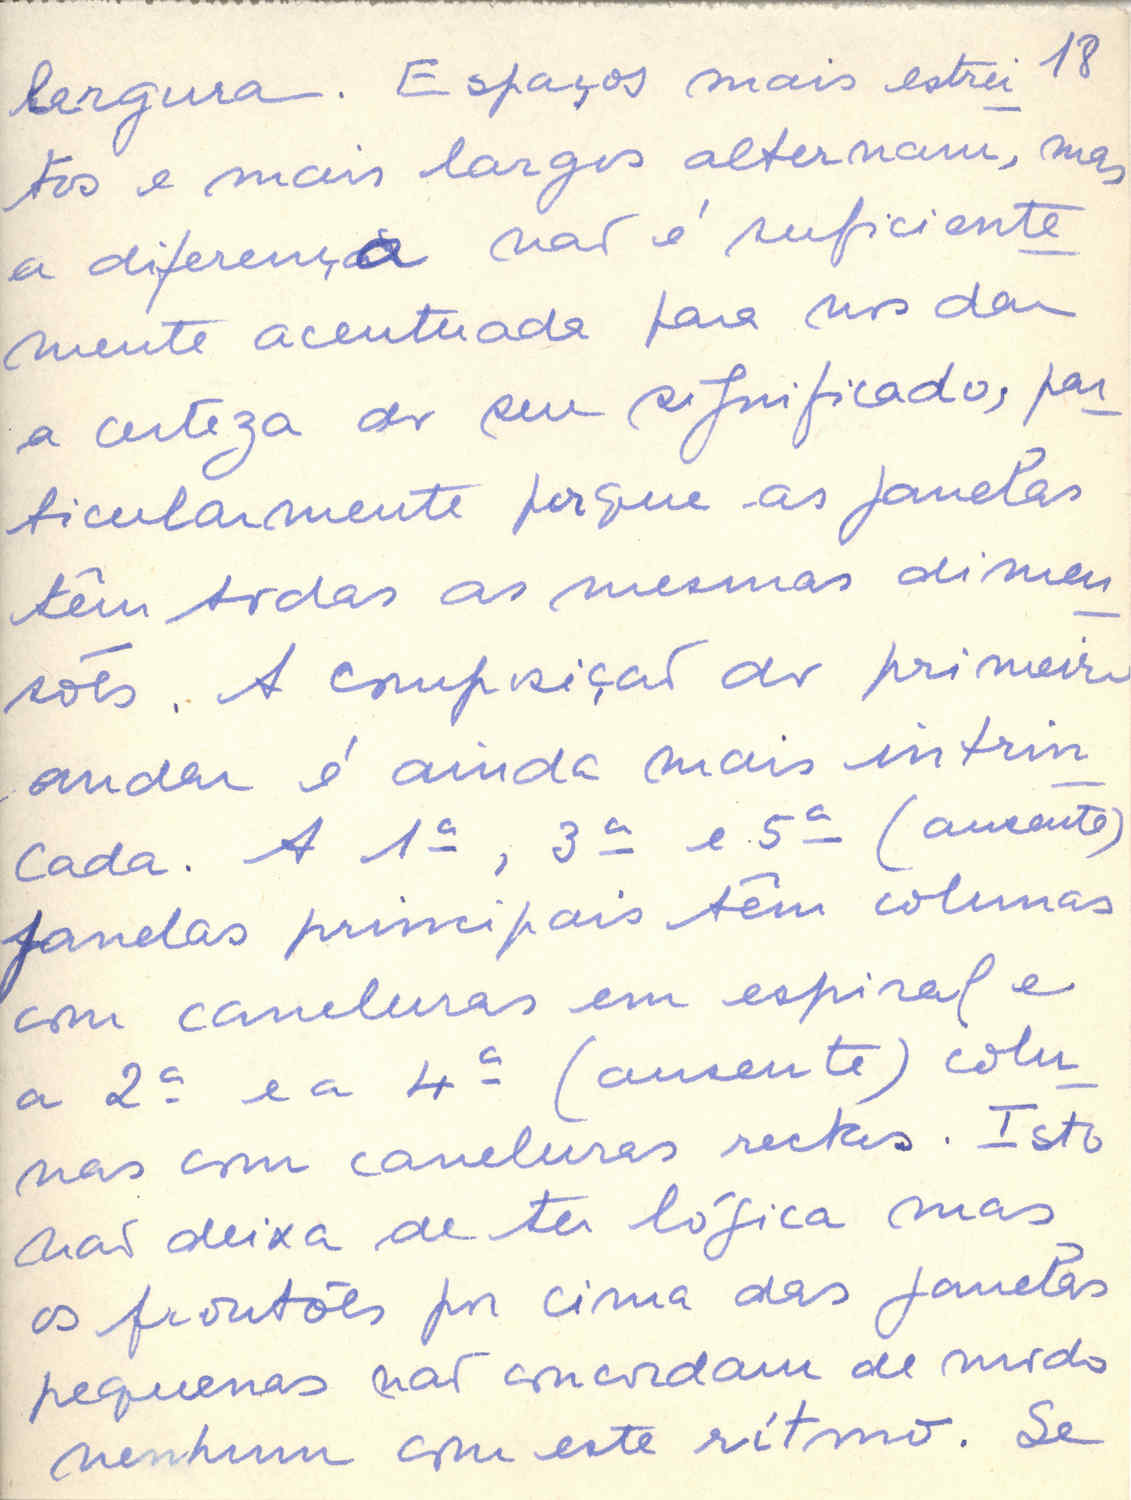 18
largura. Espaços mais estrei
tos e mais largos alternam, mas
a diferença não é suficiente
mente acentuada para nos dar
a certeza do seu significado, par
ticularmente porque as janelas
têm todas as mesmas dimen
sões. A composição do primeiro
andar é ainda mais intrin
cada. A 1ª, 3ª e 5ª (ausente)
janelas principais têm colunas
com caneluras em espiral e
a 2ª e a 4ª (ausente) colu
nas com caneluras rectas. Isto
não deixa de ter lógica mas
os frontões por cima das janelas
pequenas não concordam de modo
nenhum com este rítmo. Se